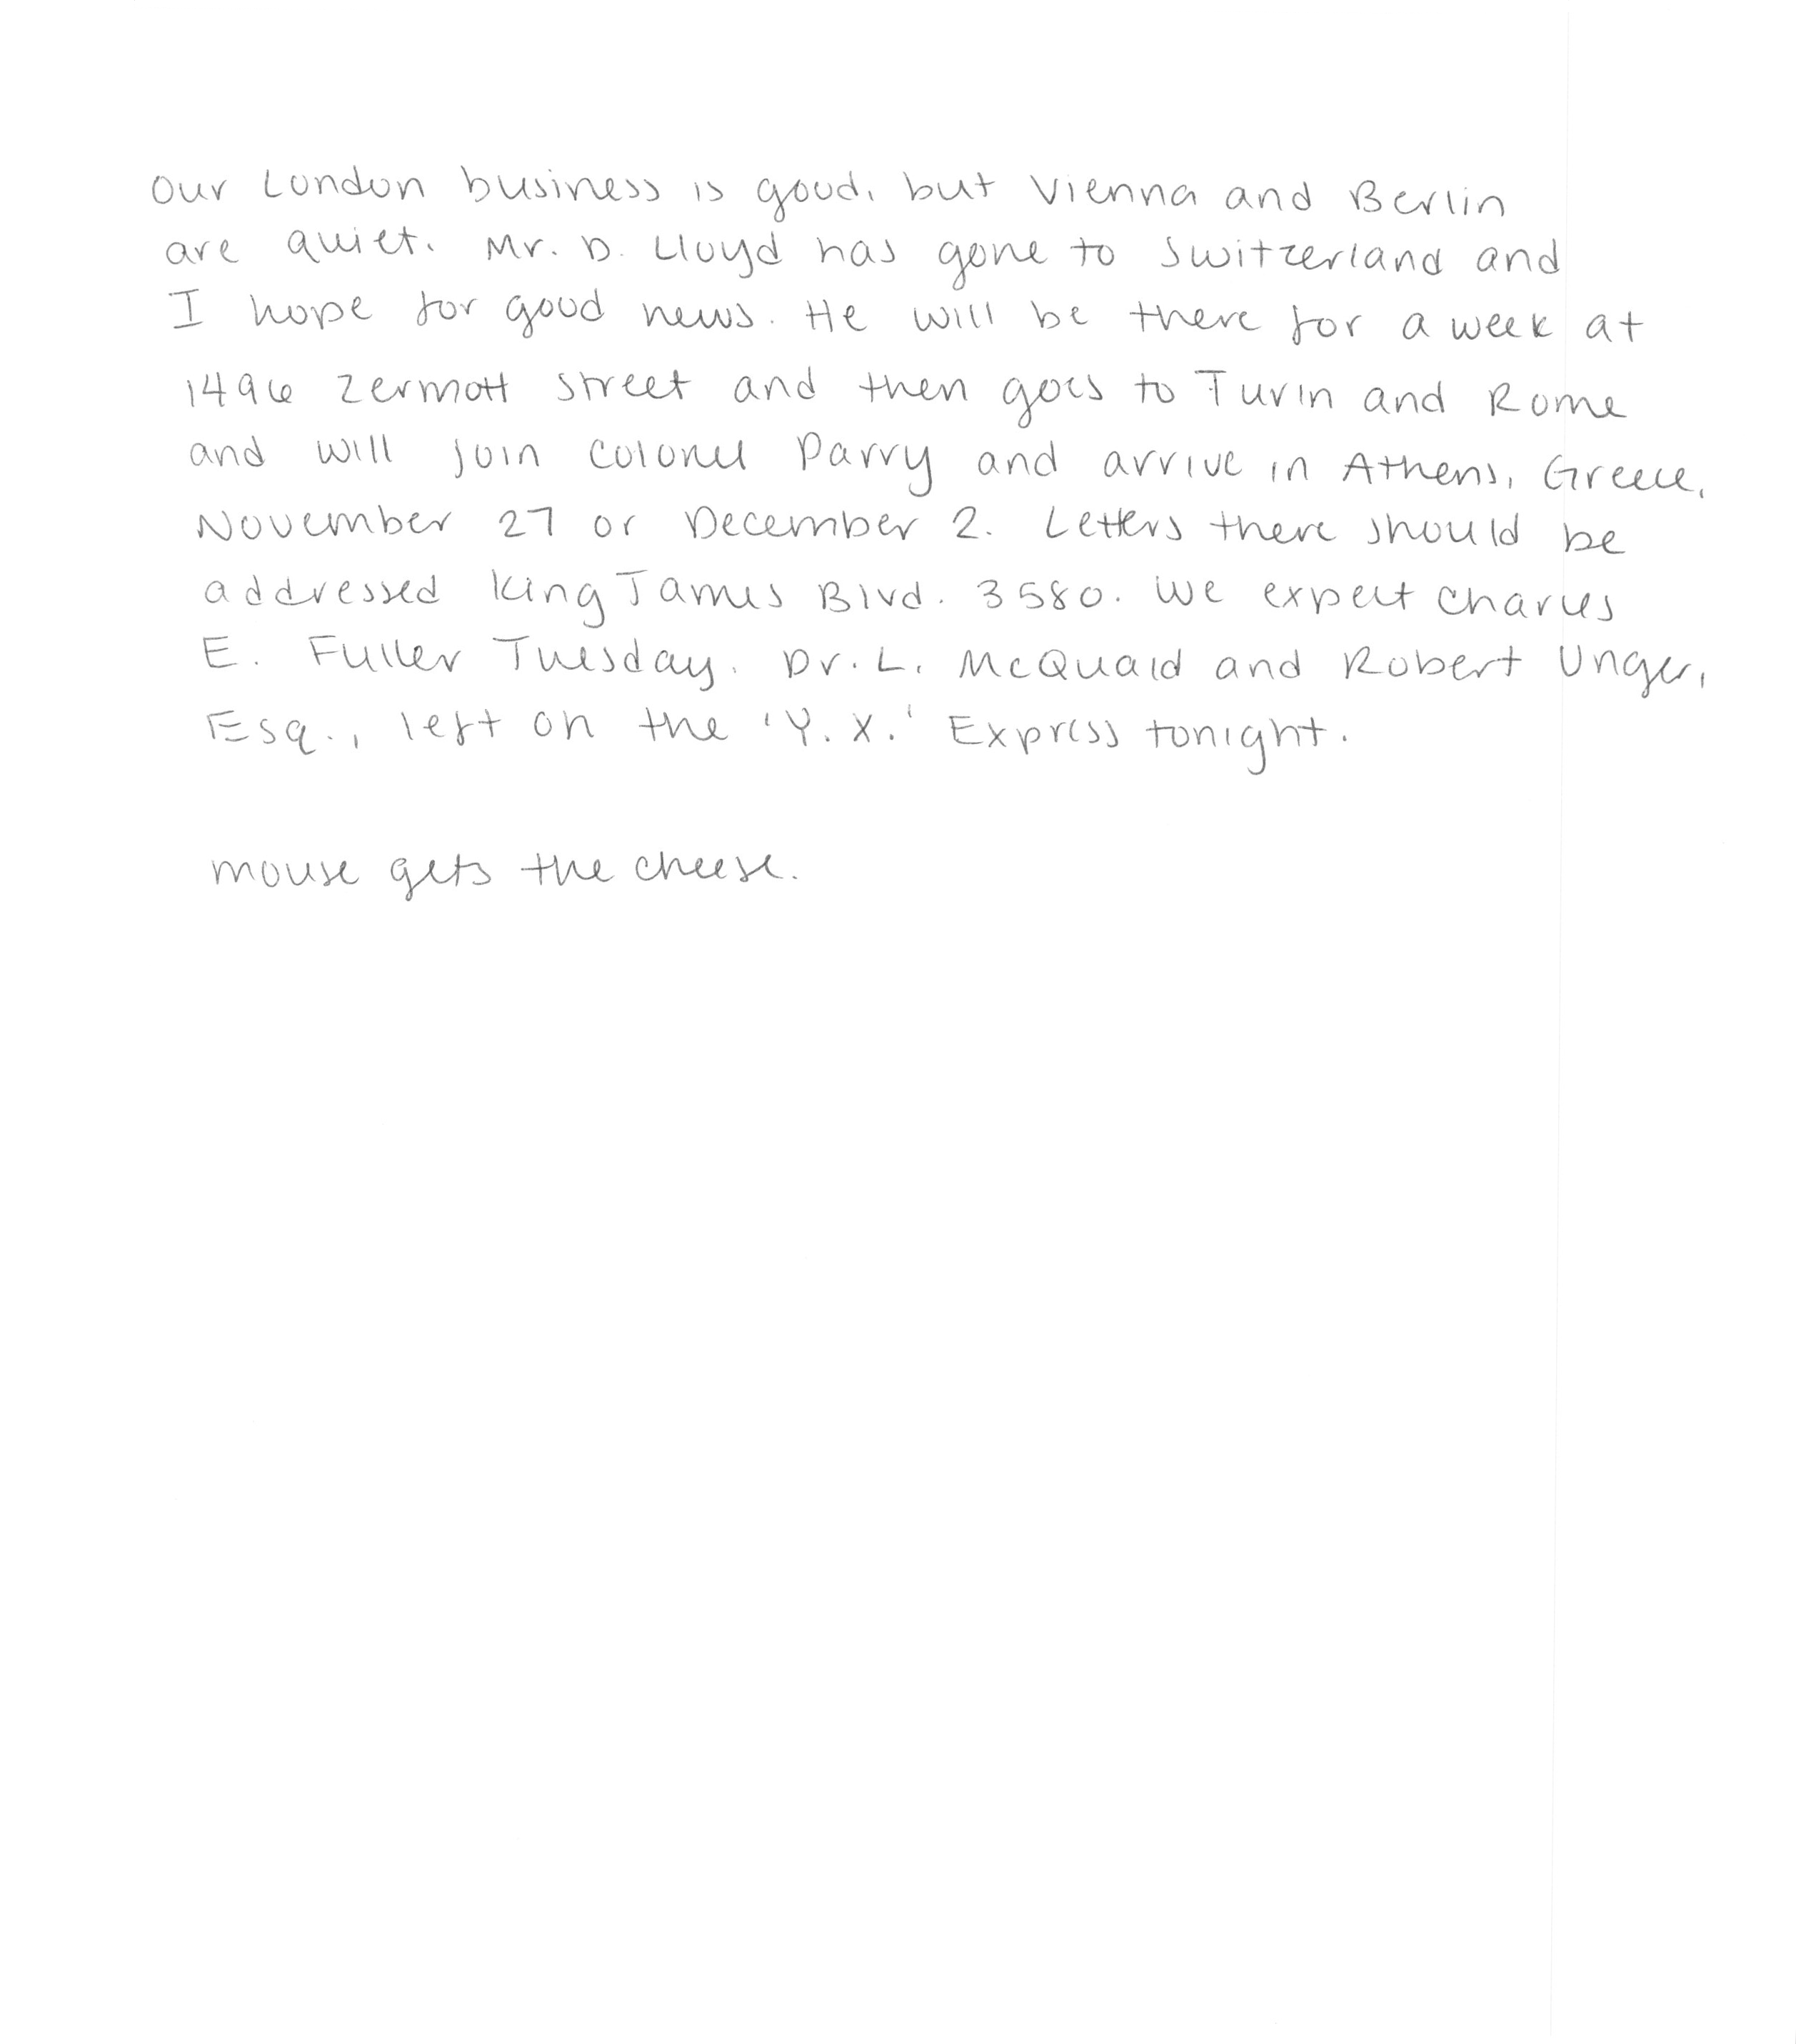 Our London business is good, but Vienna and Berlin
are quiet. Mr. D. Lloyd has gone to Switzerland and
I hope for good news. He will be there for a week at
1496 Zermott Street and then goes to Turin and Rome
and will join Colonel Parry and arrive in Athens, Greece,
November 27 or December 2. Letters there should be
addressed King James Blvd. 3580. We expect Charles
E. Fuller Tuesday. Dr. L. McQuaid and Robert Unger,
Esq., left on the 'Y.X.' Express tonight.
mouse gets the cheese.